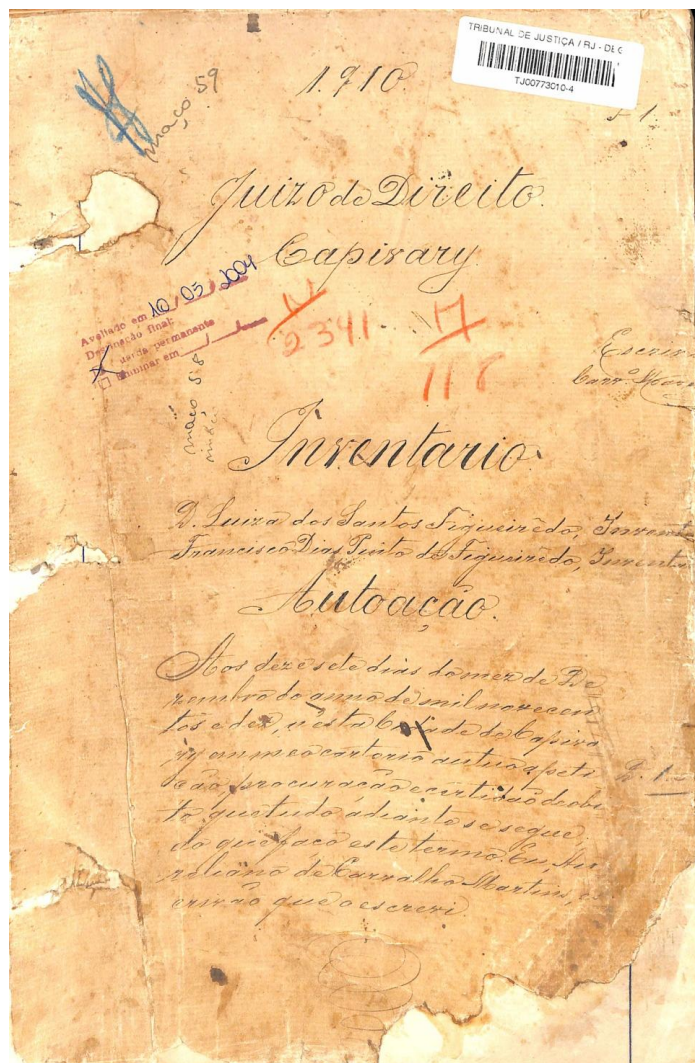 TRIBUNAL DE JUSTIÇA / RJ - DEG
TJ00773010-4
maço 59
1.910
f 1
Juizo de Direito
Capivary
Avaliado em 10/05/2004
Destinação final:
guarda permanente
eliminar em
2341
117
118
maço 58
Escriv
Carv.º Mar
Inventario
D. Luiza dos Santos Figueirêdo, Invent
Francisco Dias Pinto de Figueirêdo, Invent
Autoação.
Aos dezesete dias do mez de De
zembro do anno de mil novecen
tos e dez, n'esta Cidade de Capiva
ry em meo cartorio autuo a peti
ção, procuração e certidão de obi
to que tudo adiante se segue,
do que faço este termo. Eu, Au
reliano de Carvalho Martins, es
crivão que o escrevi.